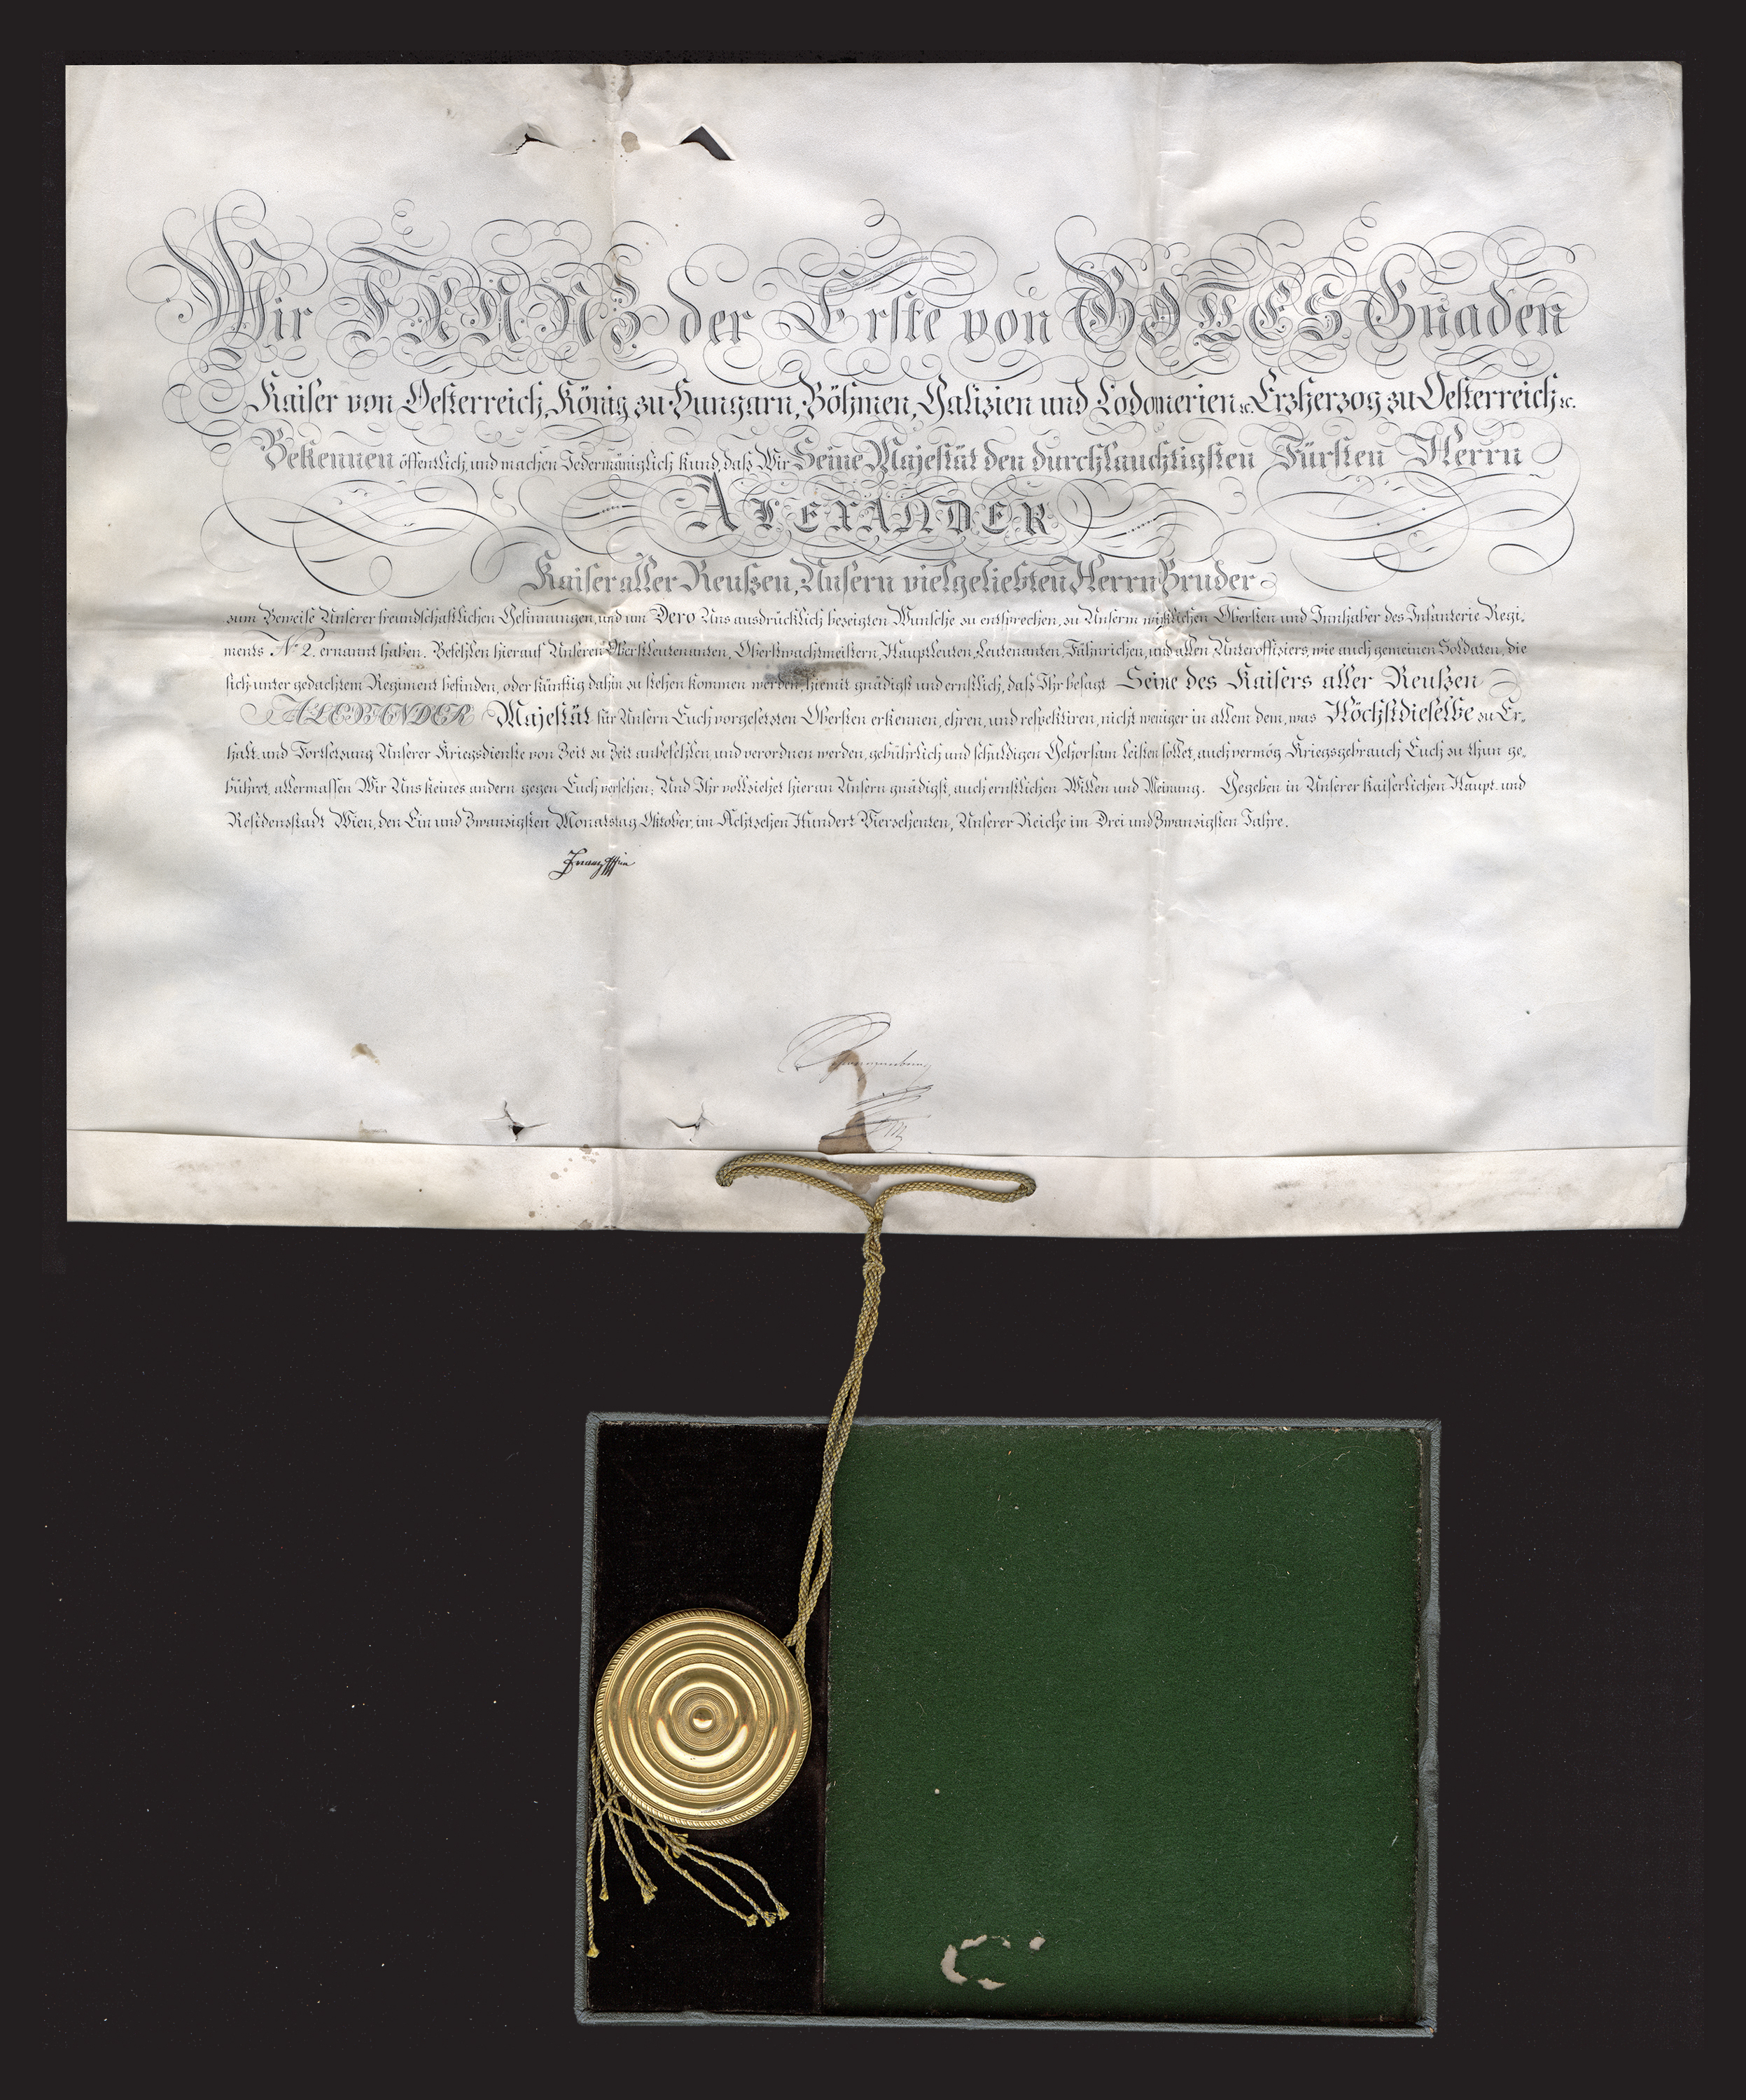 Wir FRANZ der Erste von GOTTES Gnaden
Kaiser von Oesterreich, König zu Hungarn, Böhmen, Galizien und Lodomerien &c. Erzherzog zu Oesterreich &c.
Bekennen öffentlich, und machen Jedermäniglich kund, daß Wir Seine Majestät den durchlauchtigsten Fürsten Herrn
ALEXANDER
Kaiser aller Reußen, Unsern vielgeliebten Herrn Bruder
zum Beweise Unserer freundschaftlichen Gesinnungen, und um Dero Uns ausdrücklich bezeigten Wunsche zu entsprechen, zu Unserm wirklichen Obersten und Innhaber des Infanterie Regi-
ments No 2. ernannt haben. Befehlen hierauf Unseren Oberstleutenanten, Oberstwachtmeistern, Hauptleuten, Leutenanten, Fähnrichen, und allen Unteroffiziers, wie auch gemeinen Soldaten, die
sich unter gedachtem Regiment befinden, oder künftig dahin zu stehen kommen werden, hiemit gnädigst und ernstlich, daß Ihr besagt Seine des Kaisers aller Reußen
ALEXANDER Majestät für Unsern Euch vorgesetzten Obersten erkennen, ehren, und respektiren, nicht weniger in allem dem, was Höchstdieselbe zu Er-
halt- und Fortsetzung Unserer Kriegsdienste von Zeit zu Zeit anbefehlen, und verordnen werden, gebührlich und schuldigen Gehorsam leisten sollet, auch vermög Kriegsgebrauch Euch zu thun ge-
bühret, allermassen Wir Uns keines andern gegen Euch versehen; Und Ihr vollziehet hieran Unsern gnädigst, auch ernstlichen Willen und Meinung. Gegeben in Unserer Kaiserlichen Haupt- und
Residenzstadt Wien, den Ein und Zwanzigsten Monatstag Oktober, im Achtzehen Hundert Vierzehenten, Unserer Reiche im Drei und Zwanzigsten Jahre.
Franz